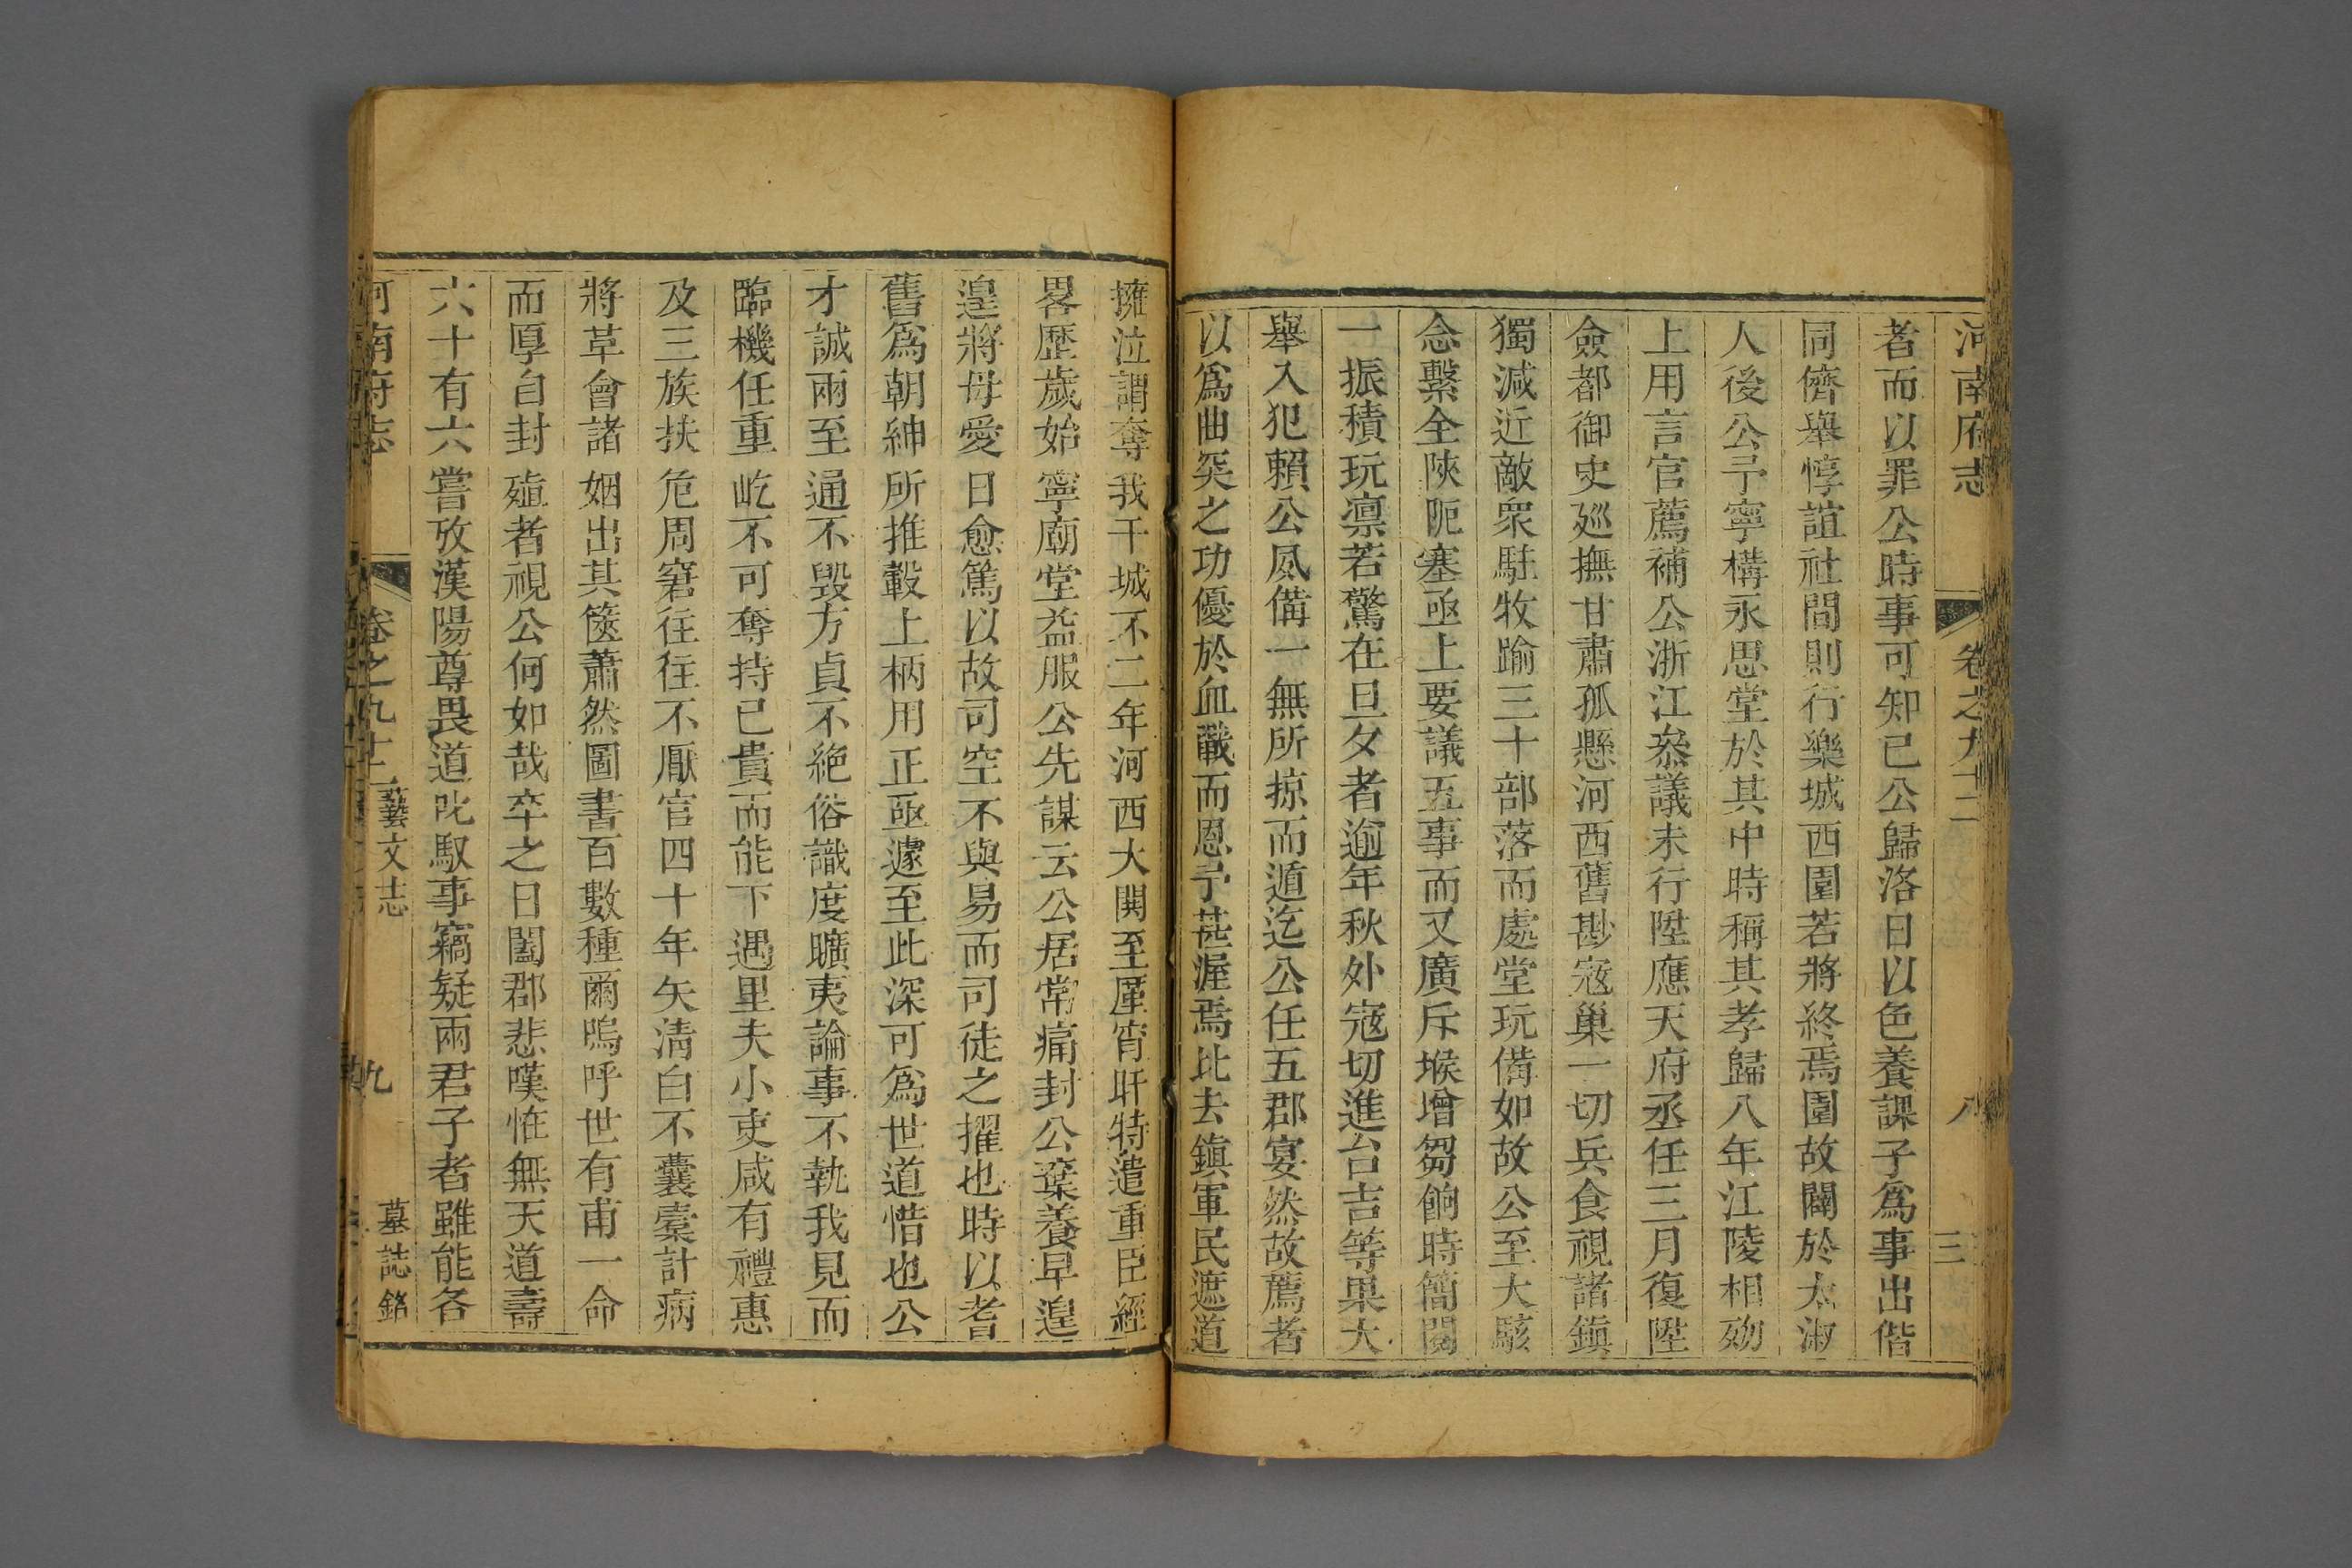 河南府志 卷之九十二 八 三
者而以罪公時事可知已公歸洛日以色養課子爲事出偕
同儕舉惇誼社間則行樂城西園若將終焉園故闢於太淑
人後公予寧構永思堂於其中時稱其孝歸八年江陵相歿
上用言官薦補公浙江叅議未行陞應天府丞任三月復陞
僉都御史廵撫甘肅孤懸河西舊尠寇巢一切兵食視諸鎮
獨減近敵衆駐牧踰三十部落而處堂玩備如故公至大駭
念繫全陜阨塞亟上要議五事而又廣斥堠增芻餉時簡閱
一振積玩凛若驚在旦夕者逾年秋外寇切進台吉等果大
舉入犯賴公夙備一無所掠而遁迄公任五郡宴然故薦者
以爲曲突之功優於血戰而恩予甚渥焉比去鎮軍民遮道
擁泣謂奪我干城不二年河西大閧至厪宵旰特遣重臣經
畧歷歲始寧廟堂益服公先謀云公居常痛封公棄養早遑
遑將母愛日愈篤以故司空不與易而司徒之擢也時以耆
舊爲朝紳所推轂上柄用正亟遽至此深可爲世道惜也公
才誠兩至通不毀方貞不絶俗識度曠夷論事不執我見而
臨機任重屹不可奪持已貴而能下遇里夫小吏咸有禮惠
及三族扶危周窘往往不厭官四十年矢清白不囊槖計病
將革會諸姻出其篋蕭然圖書百數種爾嗚呼世有甫一命
而厚自封殖者視公何如哉卒之日闔郡悲嘆恠無天道壽
六十有六嘗攷漢陽尊畏道叱馭事竊疑兩君子者雖能各
河南府志 卷之九十二 藝文志 九 墓誌銘